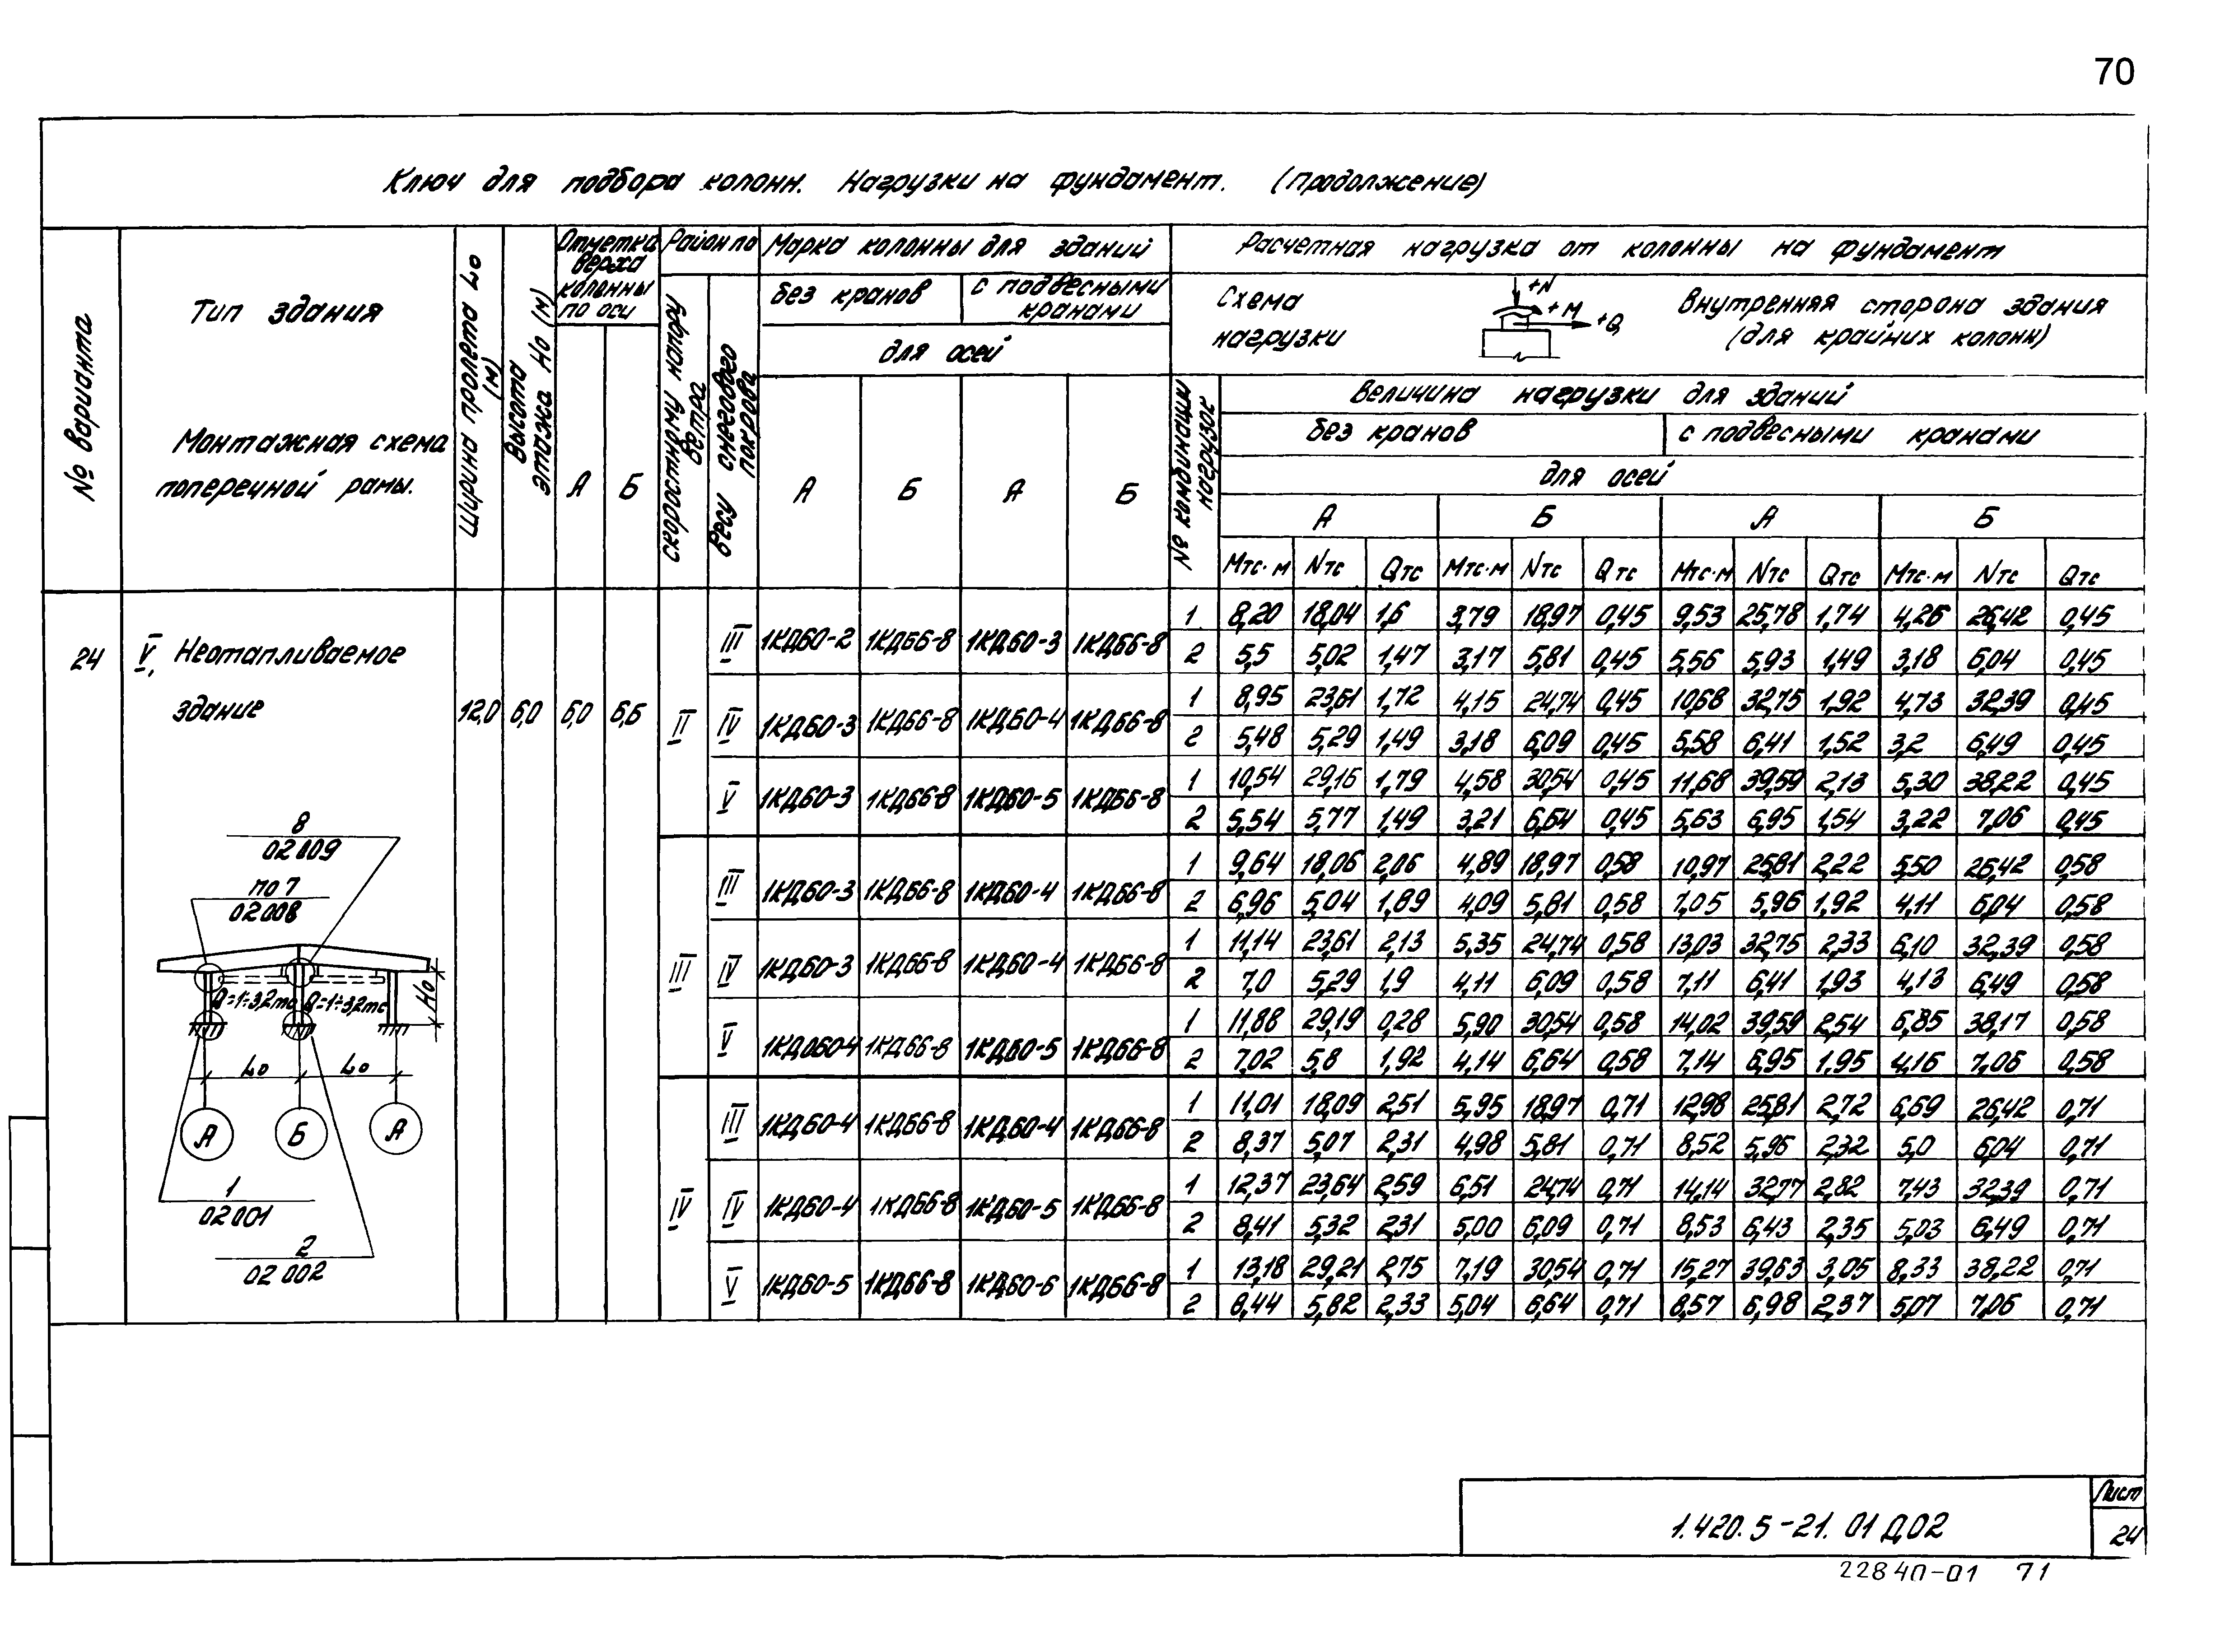 70
Ключ для подбора колонн. Нагрузки на фундамент. (продолжение)
№ варианта
Тип здания
Монтажная схема
поперечной рамы.
Ширина пролета Lo (м)
Высота этажа Но (м)
Отметка верха колонны по оси
А Б
Район по
скоростному напору ветра
весу снегового покрова
Марка колонны для зданий
без кранов
с подвесными кранами
для осей
А Б А Б
Расчетная нагрузка от колонны на фундамент
Схема нагрузки
+N
+M
+Q
Внутренняя сторона здания
(для крайних колонн)
№ комбинации нагрузок
Величина нагрузки для зданий
без кранов с подвесными кранами
для осей
А Б А Б
Мтс·м Nтс Qтс Мтс·м Nтс Qтс Мтс·м Nтс Qтс Мтс·м Nтс Qтс
24 V. Неотапливаемое
здание
12,0 6,0 6,0 6,6
II III 1КД60-2 1КД66-8 1КД60-3 1КД66-8
1 8,20 18,04 1,6 3,79 18,97 0,45 9,53 25,78 1,74 4,26 26,42 0,45
2 5,5 5,02 1,47 3,17 5,81 0,45 5,56 5,93 1,49 3,18 6,04 0,45
IV 1КД60-3 1КД66-8 1КД60-4 1КД66-8
1 8,95 23,61 1,72 4,15 24,74 0,45 10,68 32,75 1,92 4,73 32,39 0,45
2 5,48 5,29 1,49 3,18 6,09 0,45 5,58 6,41 1,52 3,2 6,49 0,45
V 1КД60-3 1КД66-8 1КД60-5 1КД66-8
1 10,54 29,16 1,79 4,58 30,54 0,45 11,68 39,59 2,13 5,30 38,22 0,45
2 5,54 5,77 1,49 3,21 6,64 0,45 5,63 6,95 1,54 3,22 7,06 0,45
III III 1КД60-3 1КД66-8 1КД60-4 1КД66-8
1 9,64 18,06 2,06 4,89 18,97 0,58 10,97 25,81 2,22 5,50 26,42 0,58
2 6,96 5,04 1,89 4,09 5,81 0,58 7,05 5,96 1,92 4,11 6,04 0,58
IV 1КД60-3 1КД66-8 1КД60-4 1КД66-8
1 11,14 23,61 2,13 5,35 24,74 0,58 13,03 32,75 2,33 6,10 32,39 0,58
2 7,0 5,29 1,9 4,11 6,09 0,58 7,11 6,41 1,93 4,13 6,49 0,58
V 1КД060-4 1КД66-8 1КД60-5 1КД66-8
1 11,88 29,19 0,28 5,90 30,54 0,58 14,02 39,59 2,54 6,85 38,17 0,58
2 7,02 5,8 1,92 4,14 6,64 0,58 7,14 6,95 1,95 4,16 7,06 0,58
IV III 1КД60-4 1КД66-8 1КД60-4 1КД66-8
1 11,01 18,09 2,51 5,95 18,97 0,71 12,98 25,81 2,72 6,69 26,42 0,71
2 8,37 5,07 2,31 4,98 5,81 0,71 8,52 5,96 2,32 5,0 6,04 0,71
IV 1КД60-4 1КД66-8 1КД60-5 1КД66-8
1 12,37 23,64 2,59 6,51 24,74 0,71 14,14 32,77 2,82 7,43 32,39 0,71
2 8,41 5,32 2,31 5,00 6,09 0,71 8,53 6,43 2,35 5,03 6,49 0,71
V 1КД60-5 1КД66-8 1КД60-6 1КД66-8
1 13,18 29,21 2,75 7,19 30,54 0,71 15,27 39,63 3,05 8,33 38,22 0,71
2 8,44 5,82 2,33 5,04 6,64 0,71 8,57 6,98 2,37 5,07 7,06 0,71
8
02 009
по 7
02 008
Q=1÷3,2тс Q=1÷3,2тс
Но
Lo Lo
А Б А
1
02 001
2
02 002
1.420.5-21.01Д02
Лист
24
22840-01 71